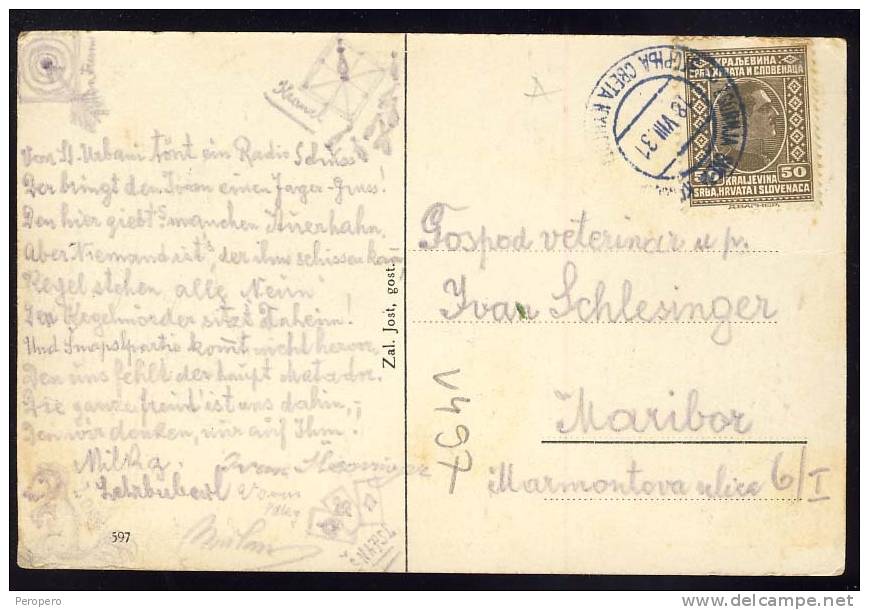 Von St. Urbani tönt ein Radio Schuss
Der bringt dem Ivan einen Jäger-Gruss!
Den hier giebt's manchen Auerhahn,
Aber Niemand ist's, der ihm schissen kann
Kegel stehen alle Neun
Der Kegelmörder sitzt Daheim!
Und Snapslpartie kom̅t nicht hervor,
Den uns fehlt der haupt Matador.
Die ganze freud' ist uns dahin,
Den wir denken, nur auf Ihm!
Milka
Ivan
Milan
ŠNAPOL
597
Zal. Jost, gost.
КРАЉЕВИНА
СРБА, ХРВАТА И СЛОВЕНАЦА
50 50
KRALJEVINA
SRBA, HRVATA I SLOVENACA
ДИНАРА
18 VIII 31
Gospod veterinar u p.
Ivan Schlesinger
Maribor
Marmontova ulica 6/I
V497
Peropero
©DELCAMPE.NET